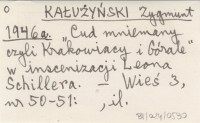 o KAŁUŻYŃSKI Zygmunt
1946a. "Cud mniemany
czyli Krakowiacy i Górale"
w inscenizacji Leona
Schillera. – Wieś 3,
nr 50-51: , il.